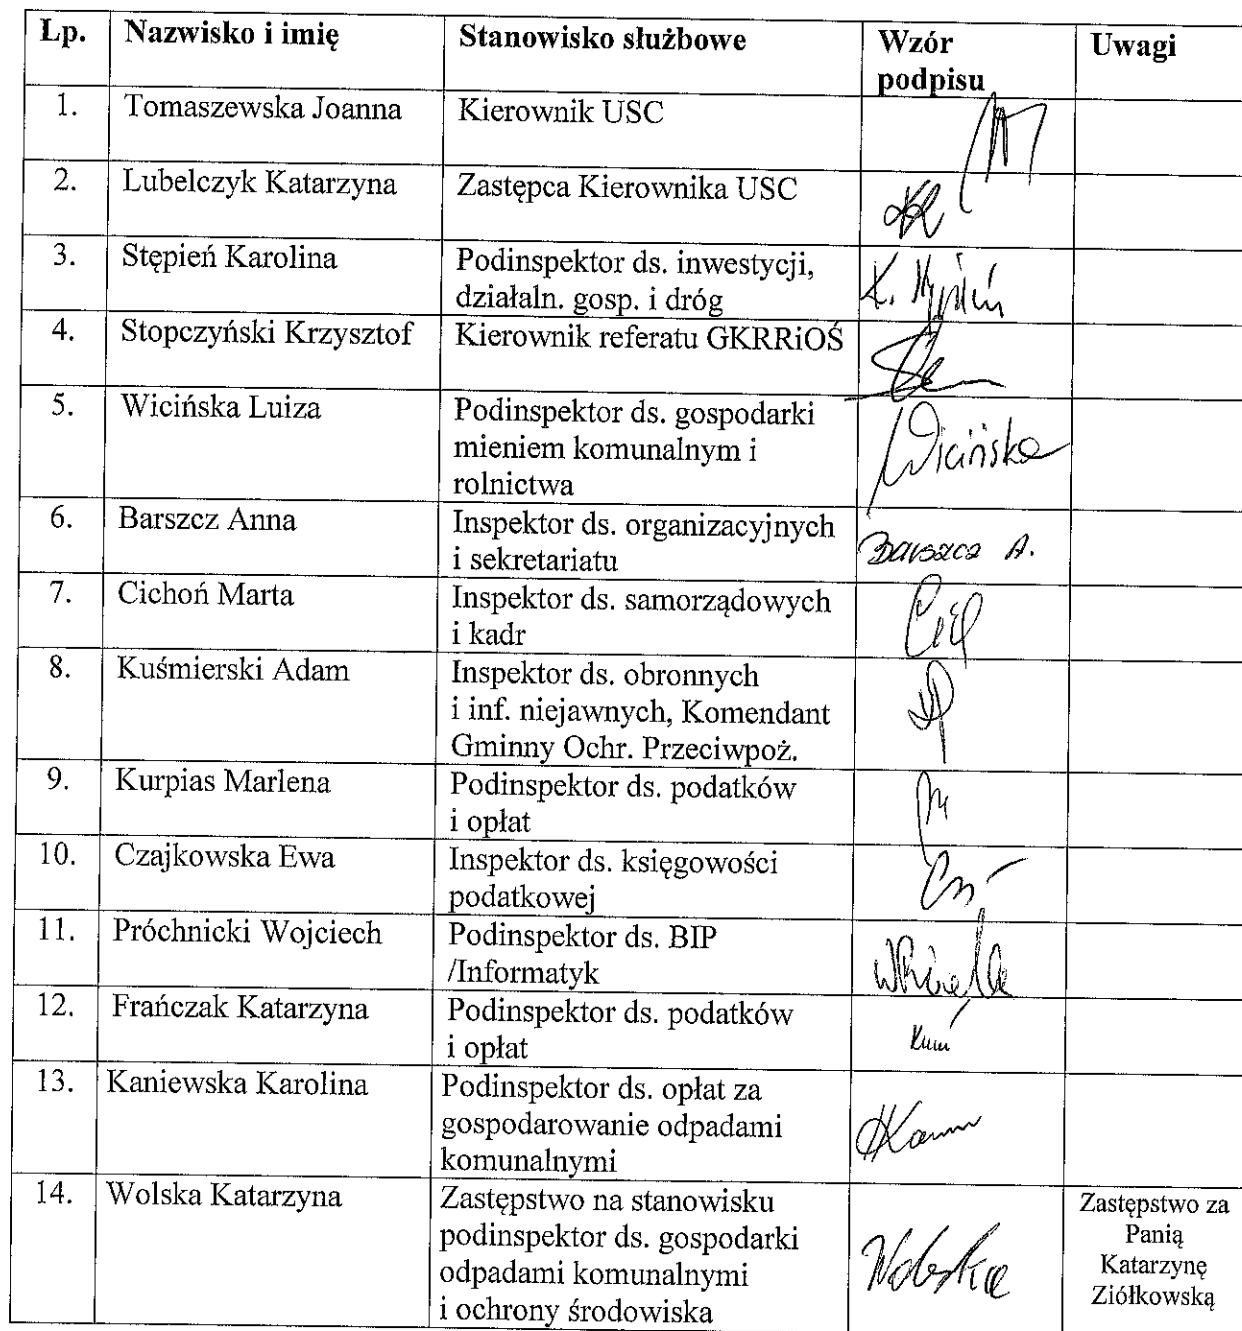 Lp. Nazwisko i imię Stanowisko służbowe Wzór podpisu Uwagi
1. Tomaszewska Joanna Kierownik USC
2. Lubelczyk Katarzyna Zastępca Kierownika USC
3. Stępień Karolina Podinspektor ds. inwestycji,
działaln. gosp. i dróg
K. Stępień
4. Stopczyński Krzysztof Kierownik referatu GKRRiOŚ
5. Wicińska Luiza Podinspektor ds. gospodarki
mieniem komunalnym i
rolnictwa
Wicińska
6. Barszcz Anna Inspektor ds. organizacyjnych
i sekretariatu
Barszcz A.
7. Cichoń Marta Inspektor ds. samorządowych
i kadr
8. Kuśmierski Adam Inspektor ds. obronnych
i inf. niejawnych, Komendant
Gminny Ochr. Przeciwpoż.
9. Kurpias Marlena Podinspektor ds. podatków
i opłat
10. Czajkowska Ewa Inspektor ds. księgowości
podatkowej
11. Próchnicki Wojciech Podinspektor ds. BIP
/Informatyk
12. Frańczak Katarzyna Podinspektor ds. podatków
i opłat
13. Kaniewska Karolina Podinspektor ds. opłat za
gospodarowanie odpadami
komunalnymi
14. Wolska Katarzyna Zastępstwo na stanowisku
podinspektor ds. gospodarki
odpadami komunalnymi
i ochrony środowiska
Wolska
Zastępstwo za
Panią
Katarzynę
Ziółkowską